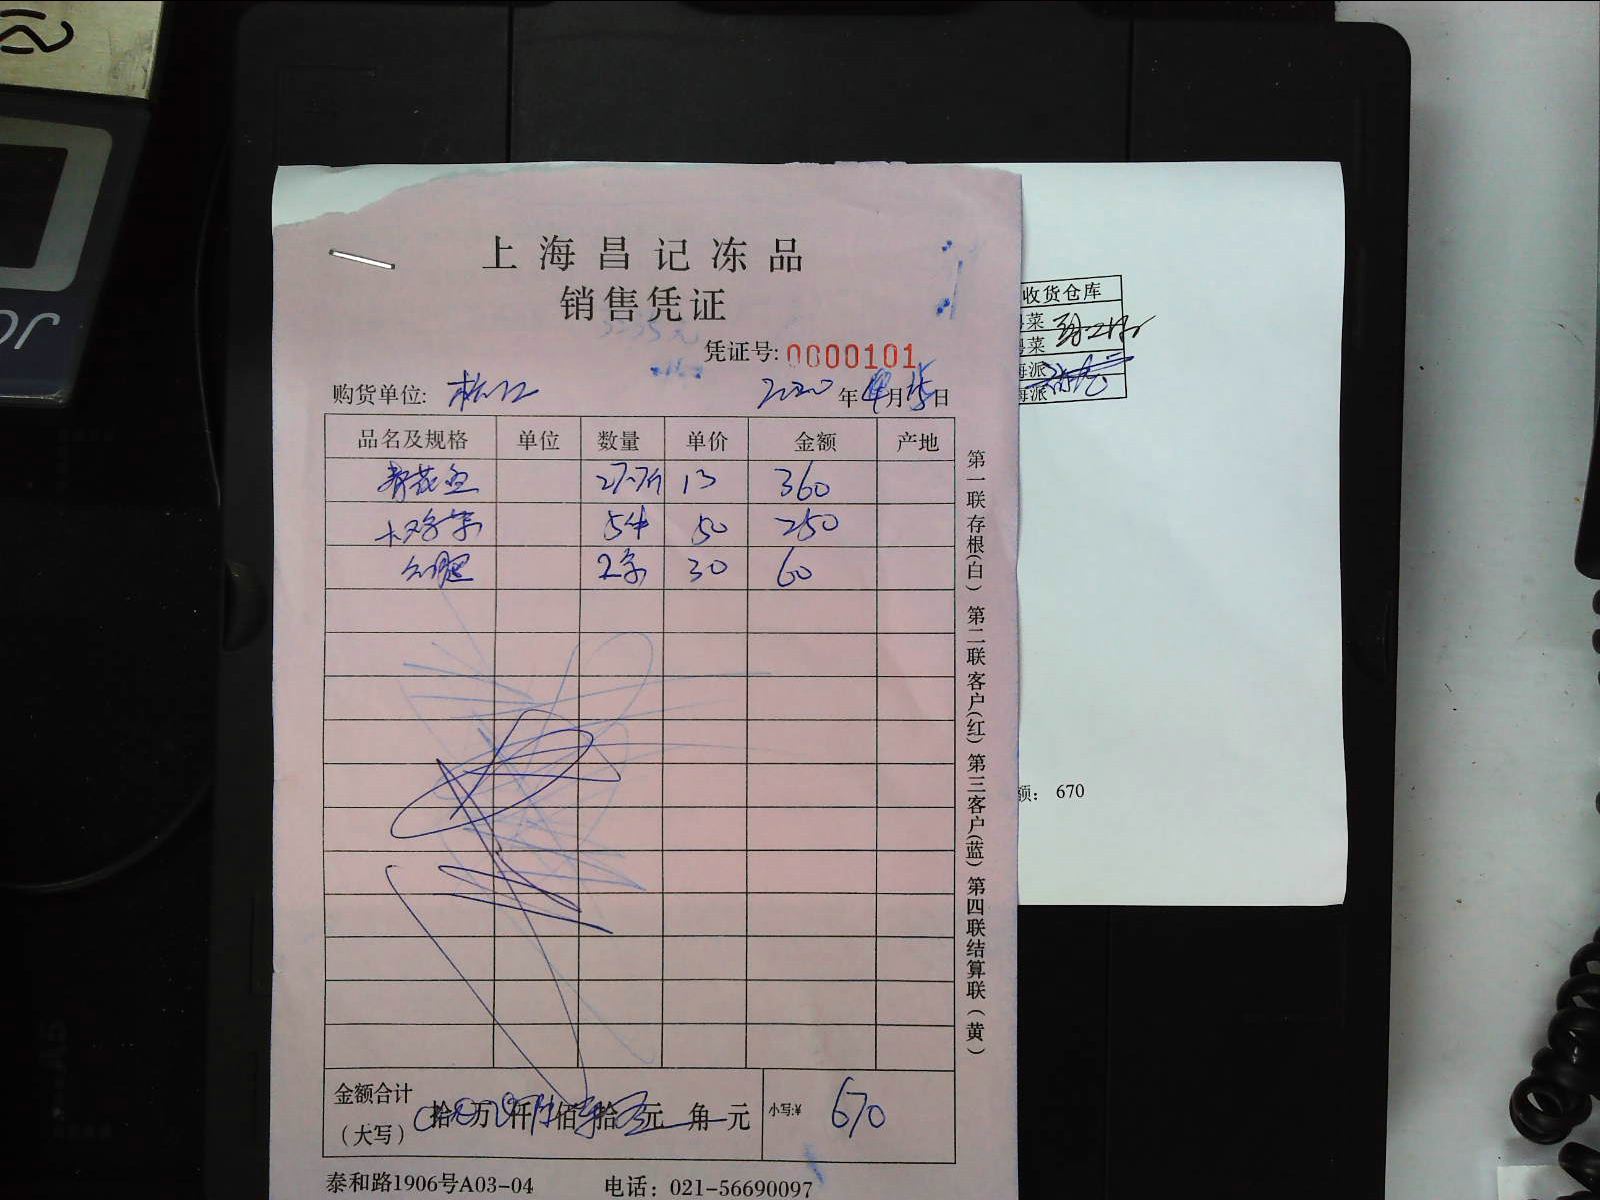 上海昌记冻品
销售凭证
凭证号: 0000101
购货单位: 2020年4月15日
品名及规格 单位 数量 单价 金额 产地
青花鱼 27.7斤 13 360
5件 50 250
2条 30 60
金额合计（大写） 拾 万 仟 佰 拾 元 角 元 小写:¥ 670
泰和路1906号A03-04 电话：021-56690097
第一联存根(白) 第二联客户(红) 第三客户(蓝) 第四联结算联(黄)
收货仓库
菜
菜
海派
海派
额： 670